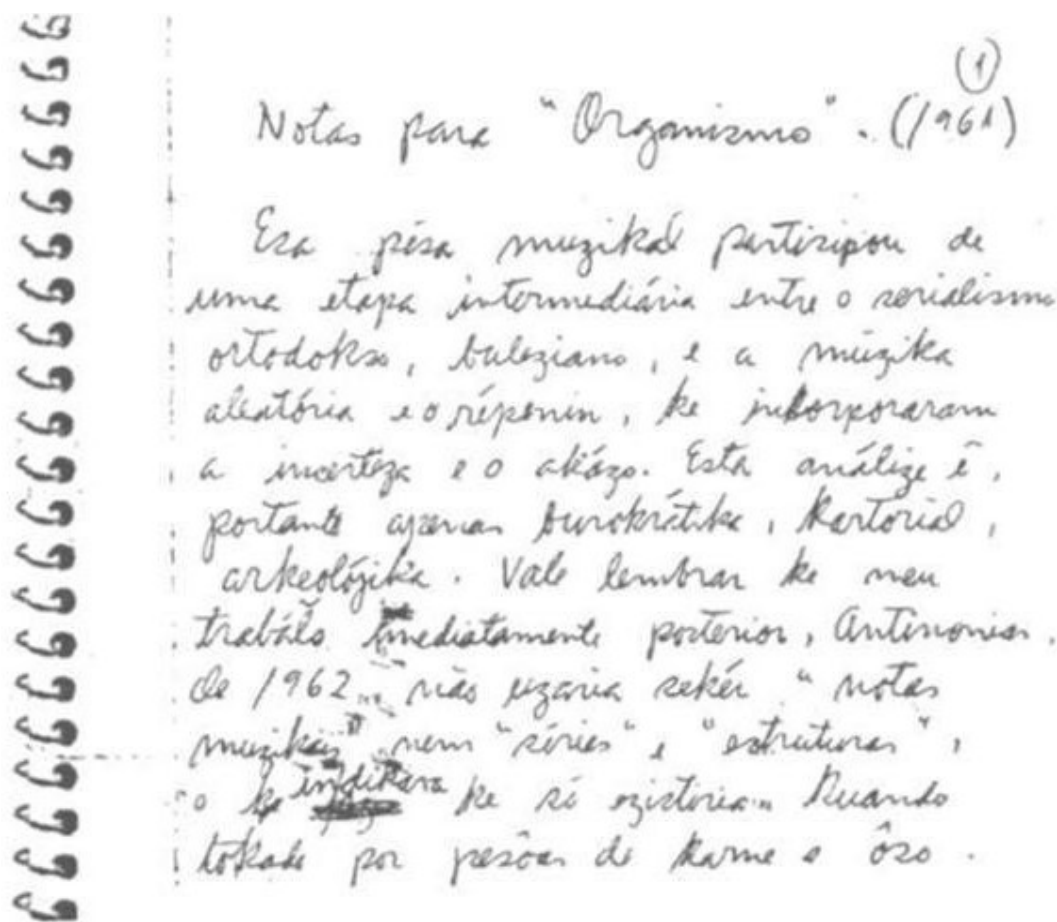 (1)
Notas para "Organizmo". (1961)
Esa pésa muzikál partisipou de
uma etapa intermediária entre o serialismo
ortodokso, buleziano, e a múzika
aleatória e o répenin, ke inkorporaram
a inserteza e o akázo. Esta análize é,
portanto apenas burokrátika, kartorial,
arkeolójika. Vale lembrar ke meu
trabálo imediatamente posterior, Antinomies,
de 1962, não uzaria sekér "notas
muzikais" nem "séries" e "estruturas",
o ke indikava ke só ezistiria kuando
tokada por pesôas de karne e ôso.